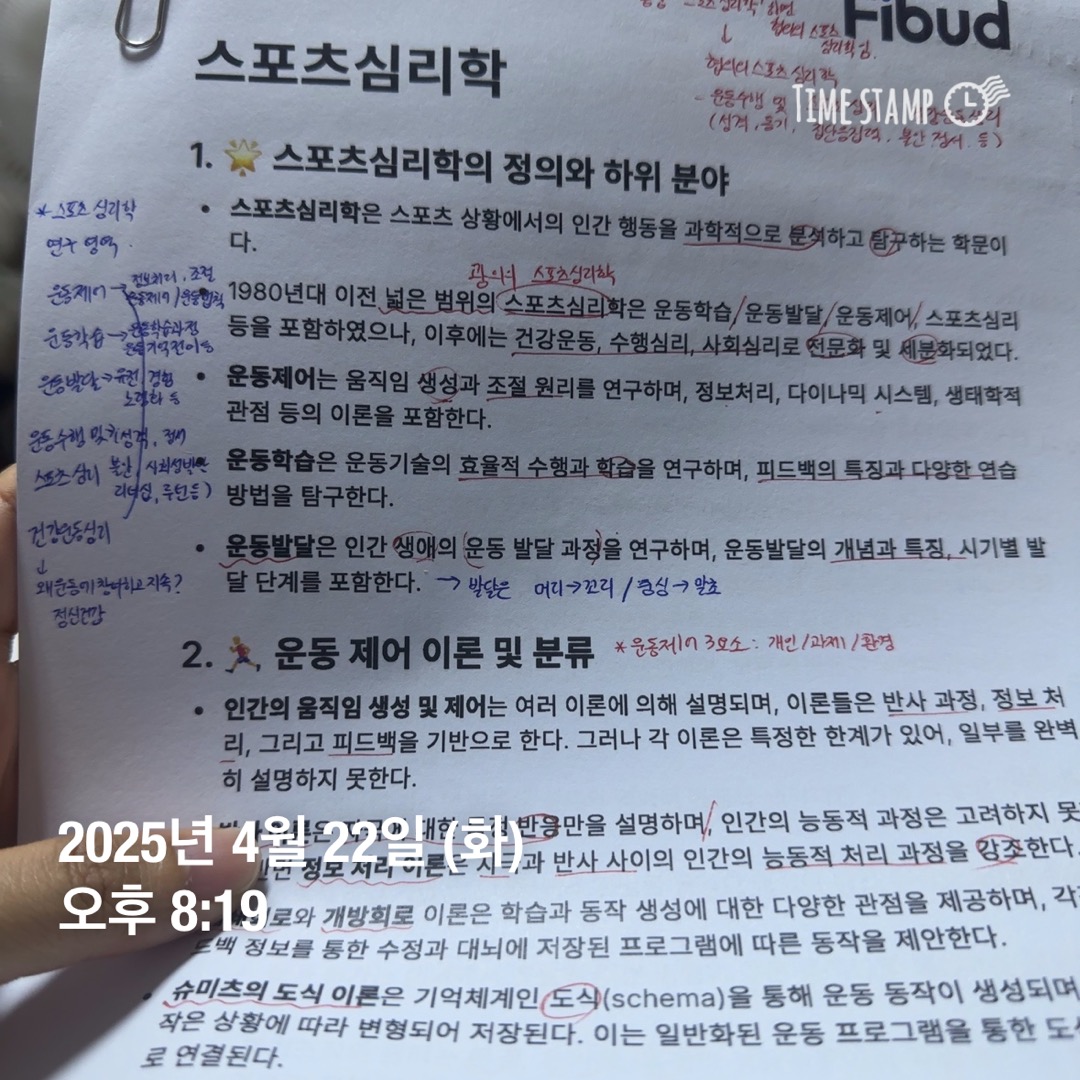 Fibud
스포츠심리학
협의의 스포츠
심리학임.
↓
협의의 스포츠 심리학
- 운동수행 및
(성격, 동기, 집단응집력, 불안 정서 등)
TIME STAMP
1. 🌟 스포츠심리학의 정의와 하위 분야
• 스포츠심리학은 스포츠 상황에서의 인간 행동을 과학적으로 분석하고 탐구하는 학문이
다.
광의의 스포츠심리학
• 1980년대 이전 넓은 범위의 스포츠심리학은 운동학습/운동발달/운동제어, 스포츠심리
등을 포함하였으나, 이후에는 건강운동, 수행심리, 사회심리로 전문화 및 세분화되었다.
• 운동제어는 움직임 생성과 조절 원리를 연구하며, 정보처리, 다이나믹 시스템, 생태학적
관점 등의 이론을 포함한다.
• 운동학습은 운동기술의 효율적 수행과 학습을 연구하며, 피드백의 특징과 다양한 연습
방법을 탐구한다.
• 운동발달은 인간 생애의 운동 발달 과정을 연구하며, 운동발달의 개념과 특징, 시기별 발
달 단계를 포함한다. → 발달은 머리→꼬리 / 중심→말초
* 스포츠 심리학
연구 영역
운동제어 → 정보처리, 조절
운동제어/운동법칙
운동학습 → 운동학습과정
운동기억전이 등
운동발달 → 유전, 경험
노령화 등
운동수행 및 성격, 정서
스포츠 심리 불안, 사회성발달
리더십, 루틴 등)
건강운동심리
↓
왜 운동에 참여하고 지속?
정신건강
2. 🏃 운동 제어 이론 및 분류 * 운동제어 3요소 : 개인/과제/환경
• 인간의 움직임 생성 및 제어는 여러 이론에 의해 설명되며, 이론들은 반사 과정, 정보 처
리, 그리고 피드백을 기반으로 한다. 그러나 각 이론은 특정한 한계가 있어, 일부를 완벽
히 설명하지 못한다.
반응만을 설명하며, 인간의 능동적 과정은 고려하지 못
정보 처리 이론은 반사 사이의 인간의 능동적 처리 과정을 강조한다.
개방회로 이론은 학습과 동작 생성에 대한 다양한 관점을 제공하며, 각
드백 정보를 통한 수정과 대뇌에 저장된 프로그램에 따른 동작을 제안한다.
• 슈미츠의 도식 이론은 기억체계인 도식(schema)을 통해 운동 동작이 생성되며
작은 상황에 따라 변형되어 저장된다. 이는 일반화된 운동 프로그램을 통한 도
로 연결된다.
2025년 4월 22일 (화)
오후 8:19